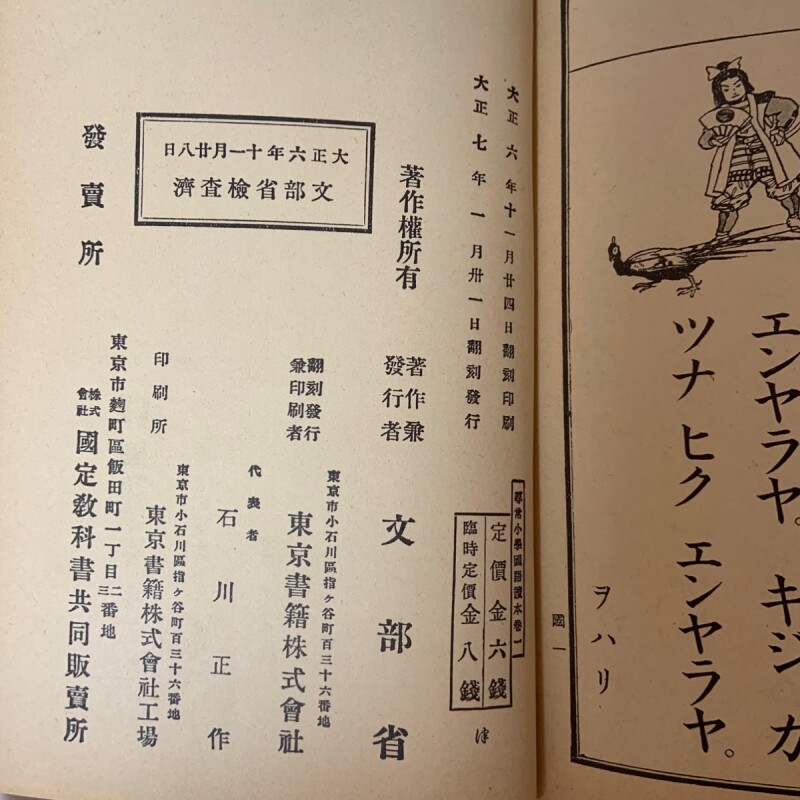 エンヤラヤ。キジ ガ
ツナ ヒク エンヤラヤ。
ヲハリ
國一
大正六年十一月廿四日翻刻印刷
大正七年一月卅一日翻刻發行
尋常小學國語讀本卷一
定價金六錢
臨時定價金八錢
著作權所有
著作兼
發行者
文部省
翻刻發行
兼印刷者
東京市小石川區指ヶ谷町百三十六番地
東京書籍株式會社
代表者
石川正作
大正六年十一月廿八日
文部省檢査濟
印刷所
東京市小石川區指ヶ谷町百三十六番地
東京書籍株式會社工場
發賣所
東京市麴町區飯田町一丁目二三番地
株式會社
國定敎科書共同販賣所